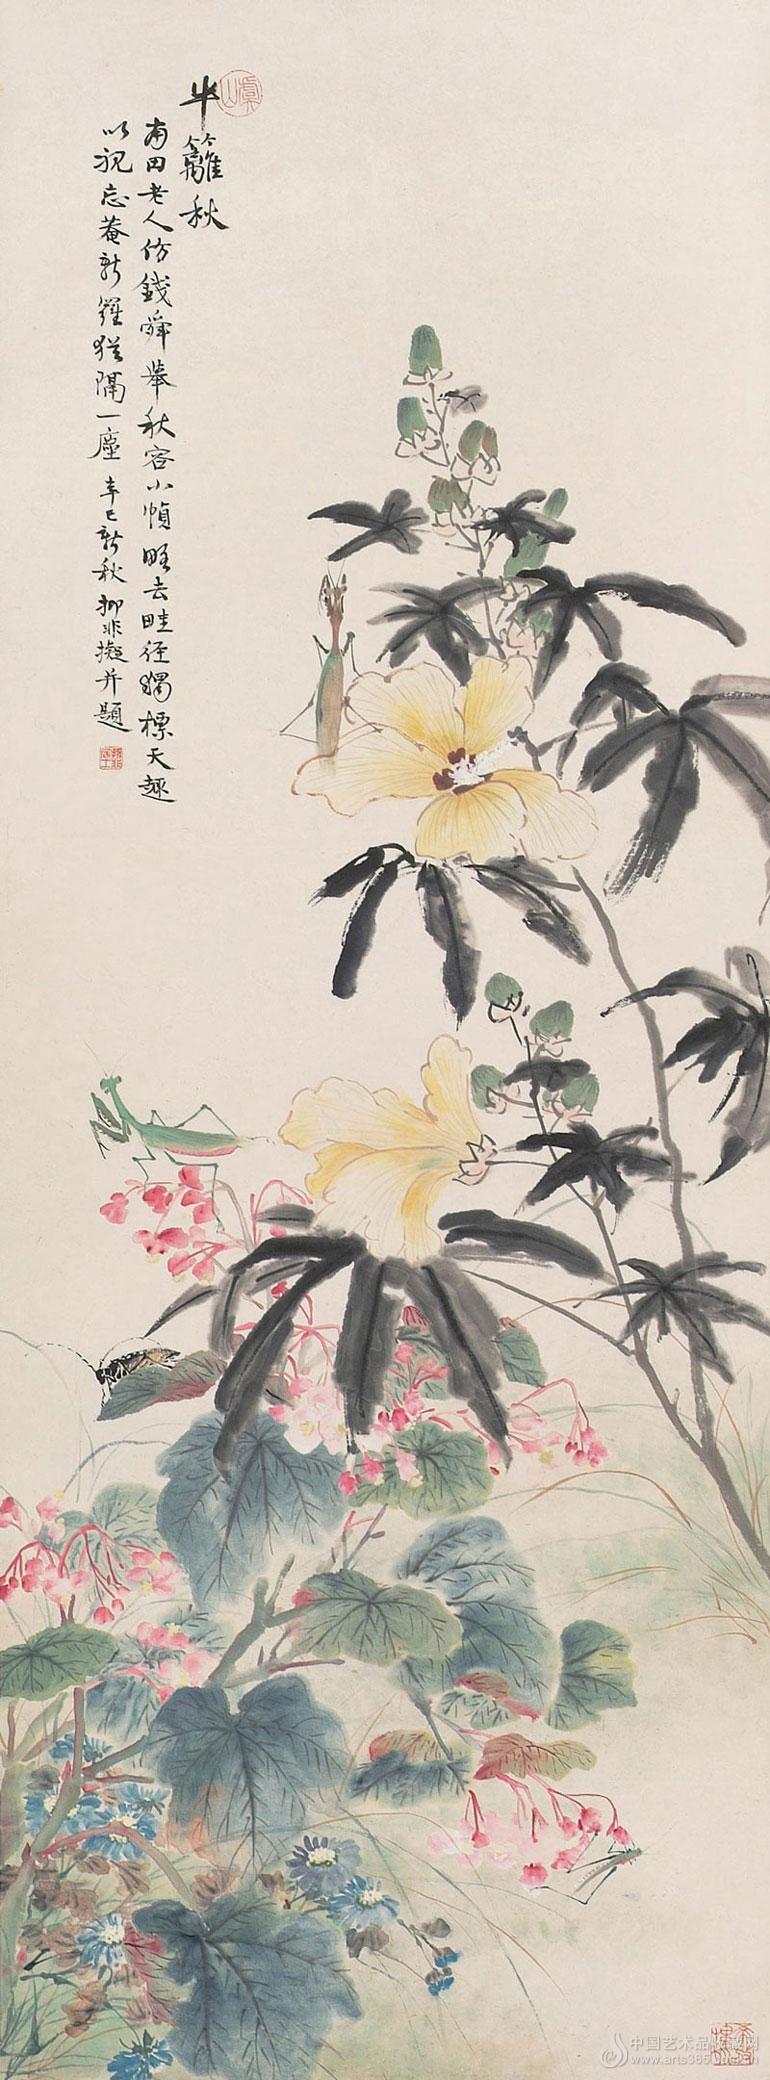 半籬秋
南田老人仿錢舜舉秋容小幀略去畦徑獨標天趣
以視忘菴新羅猶隔一塵 辛巳新秋 柳非擬并題
中国艺术品收藏网
www.arts365.cn